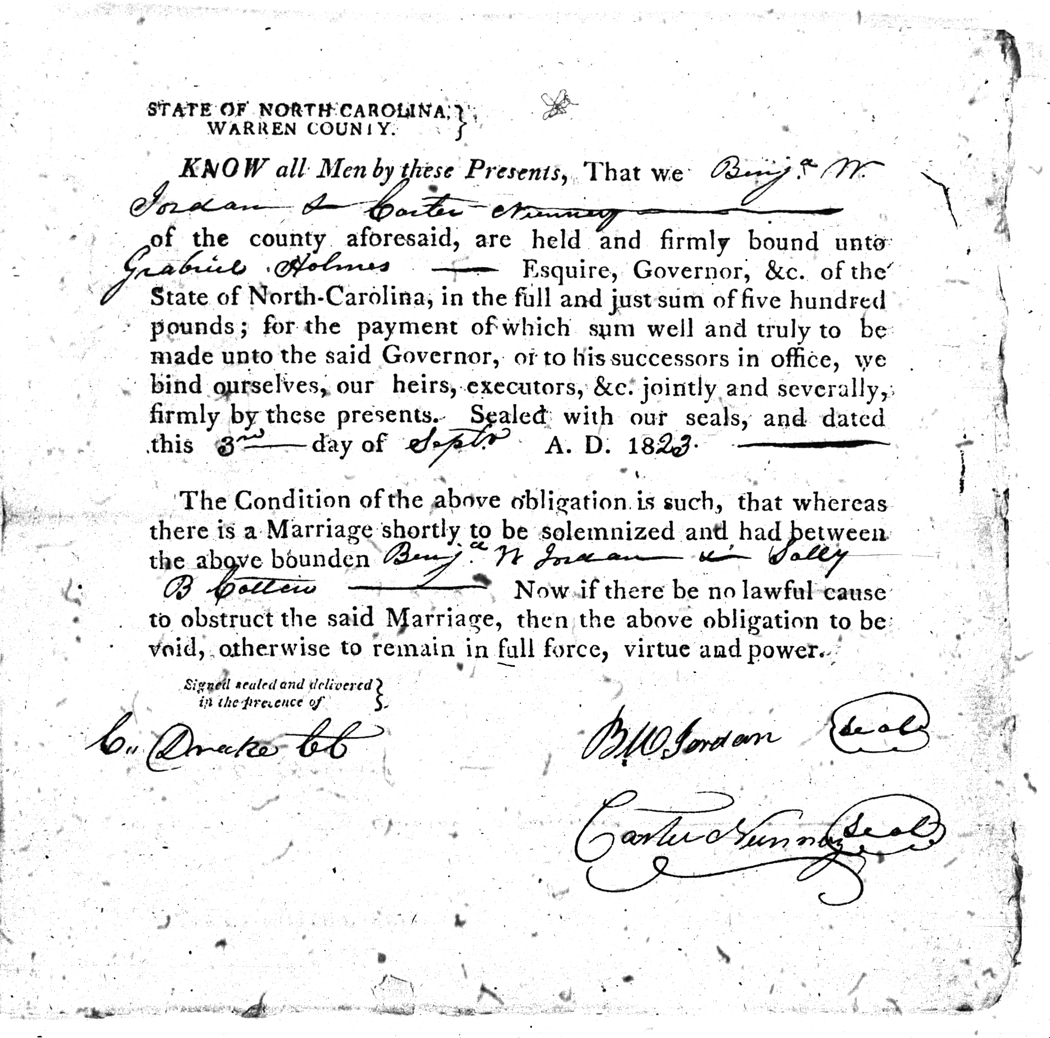 STATE OF NORTH CAROLINA,
WARREN COUNTY.
KNOW all Men by these Presents, That we Benj.a W.
Jordan & Carter Nunnery
of the county aforesaid, are held and firmly bound unto
Grabriel Holmes Esquire, Governor, &c. of the
State of North-Carolina, in the full and just sum of five hundred
pounds; for the payment of which sum well and truly to be
made unto the said Governor, or to his successors in office, we
bind ourselves, our heirs, executors, &c. jointly and severally,
firmly by these presents. Sealed with our seals, and dated
this 3rd day of Septr. A. D. 1823.
The Condition of the above obligation is such, that whereas
there is a Marriage shortly to be solemnized and had between
the above bounden Benj.a W Jordan & Sally
B Cotten Now if there be no lawful cause
to obstruct the said Marriage, then the above obligation to be
void, otherwise to remain in full force, virtue and power.
Signed sealed and delivered
in the presence of
C. Drake CC
B W Jordan Seal
Carter Nunnery Seal